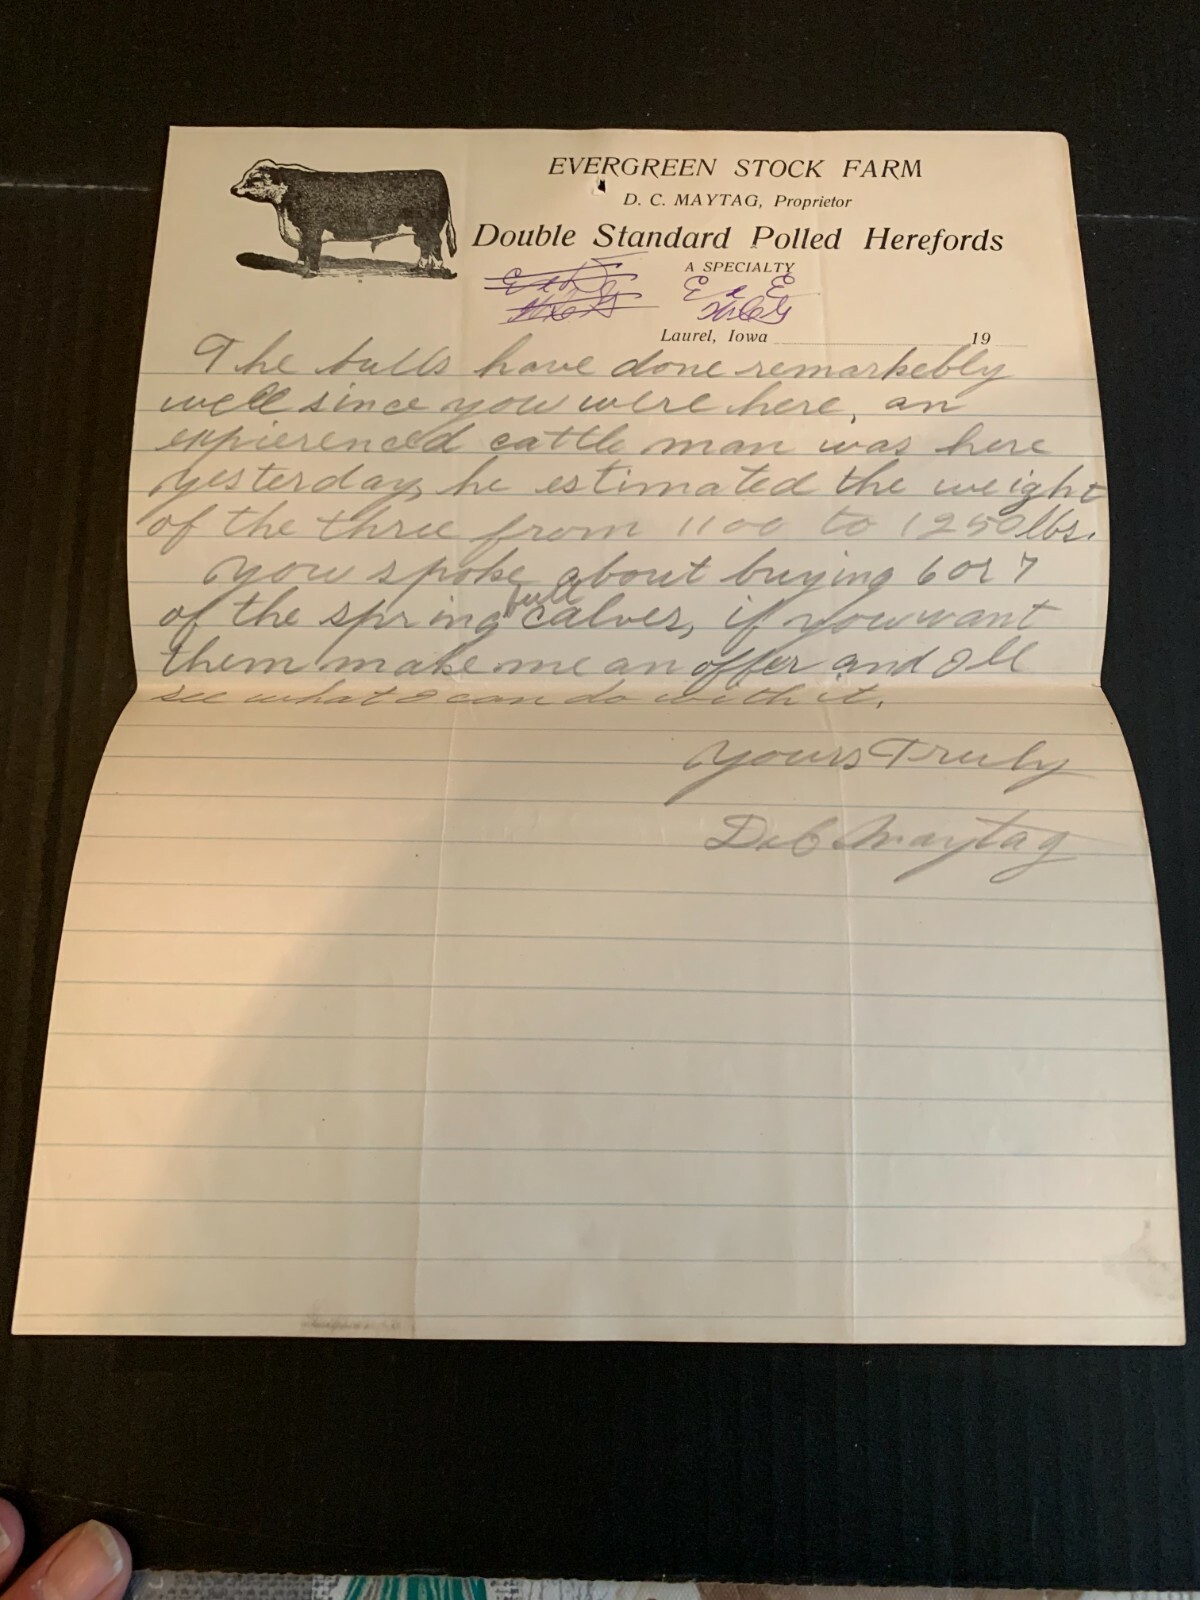 EVERGREEN STOCK FARM
D. C. MAYTAG, Proprietor
Double Standard Polled Herefords
A SPECIALTY
Laurel, Iowa 19
The bulls have done remarkebly
well since you were here, an
expierenced cattle man was here
yesterday, he estimated the weight
of the three from 1100 to 1250 lbs.
You spoke about buying 6 or 7
of the spring bull calves, if you want
them make me an offer and Ill
see what I can do with it.
Yours Truly
D.C. Maytag